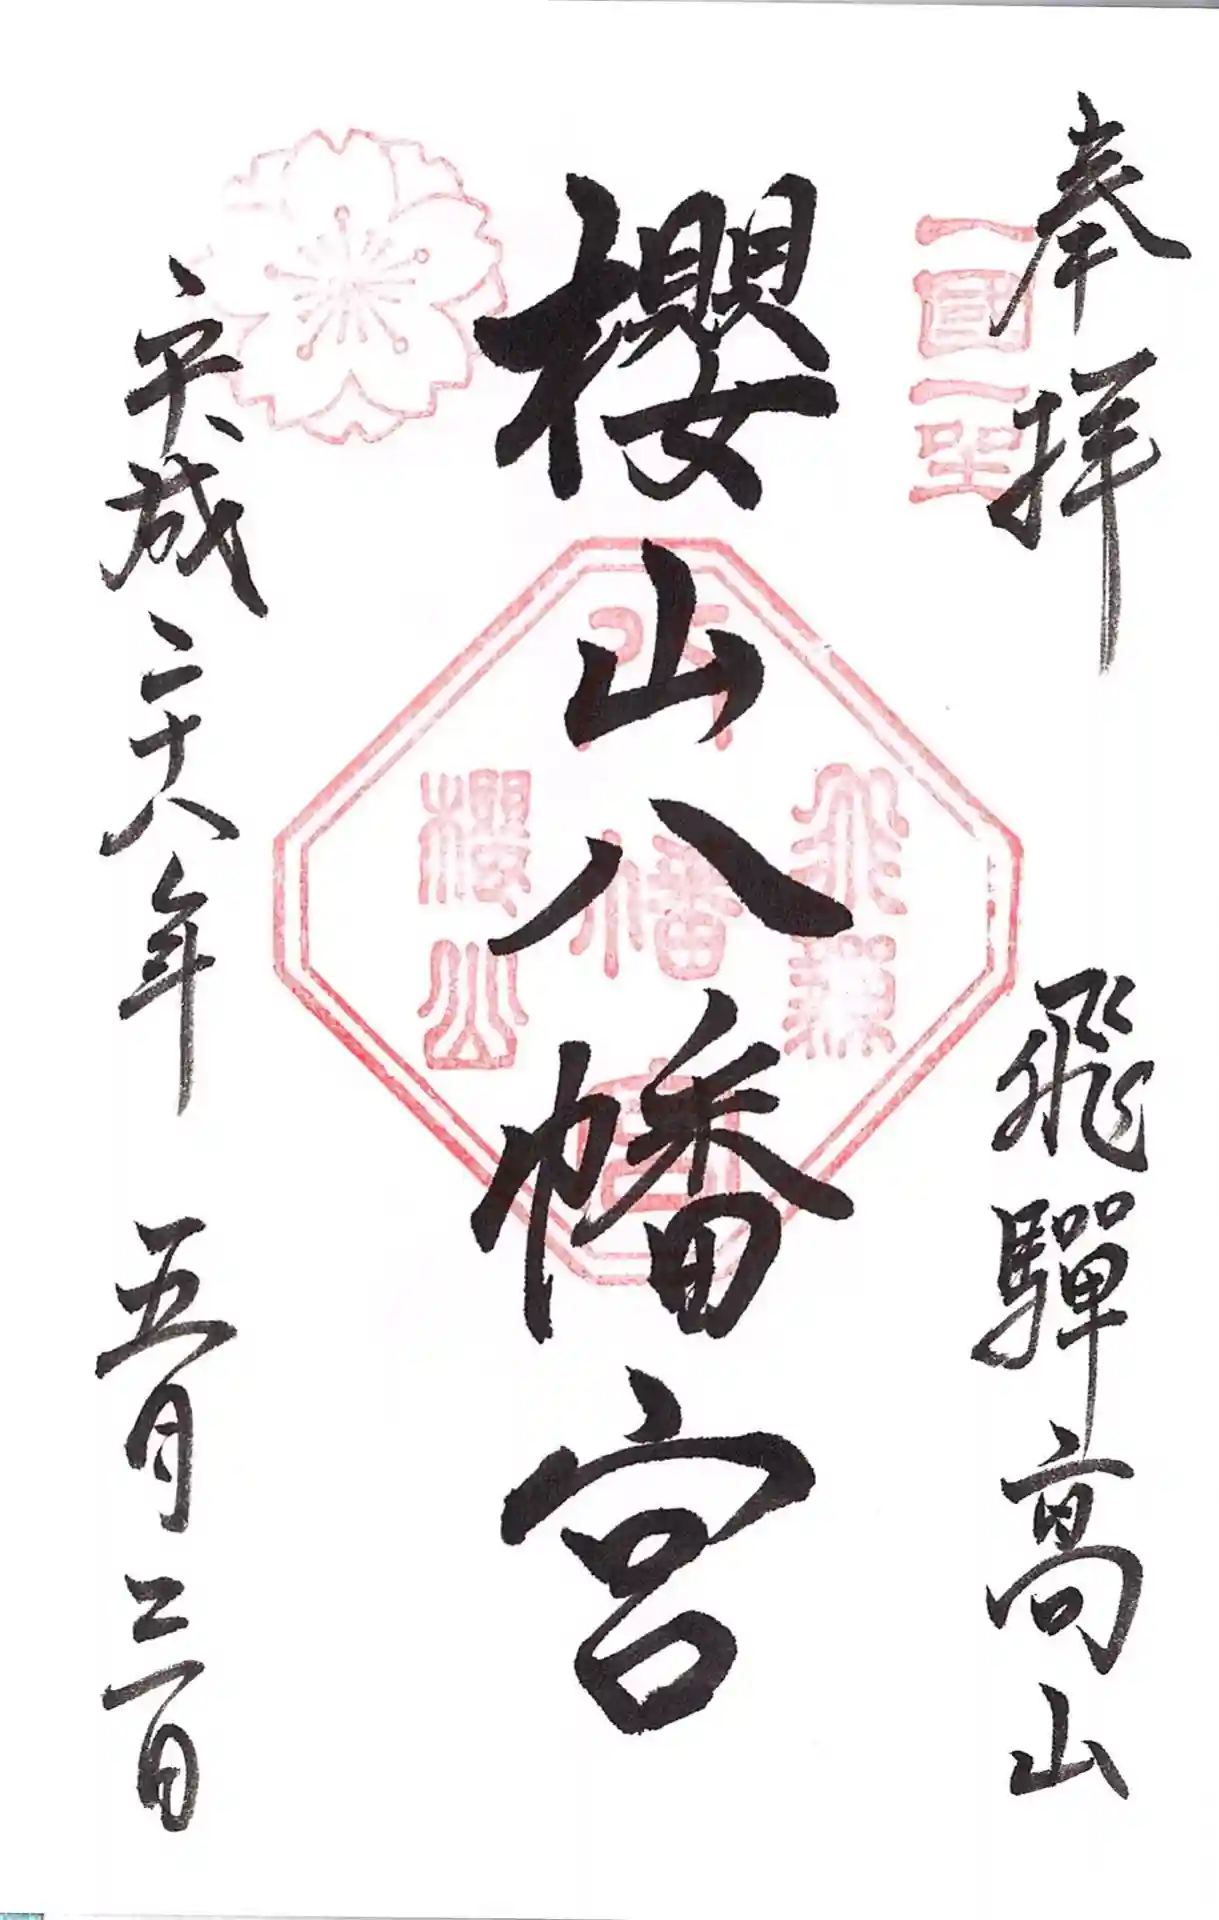 奉拝　飛驒高山
一國一
櫻山八幡宮
飛驒
八幡宮
櫻山
平成二十八年　五月三日